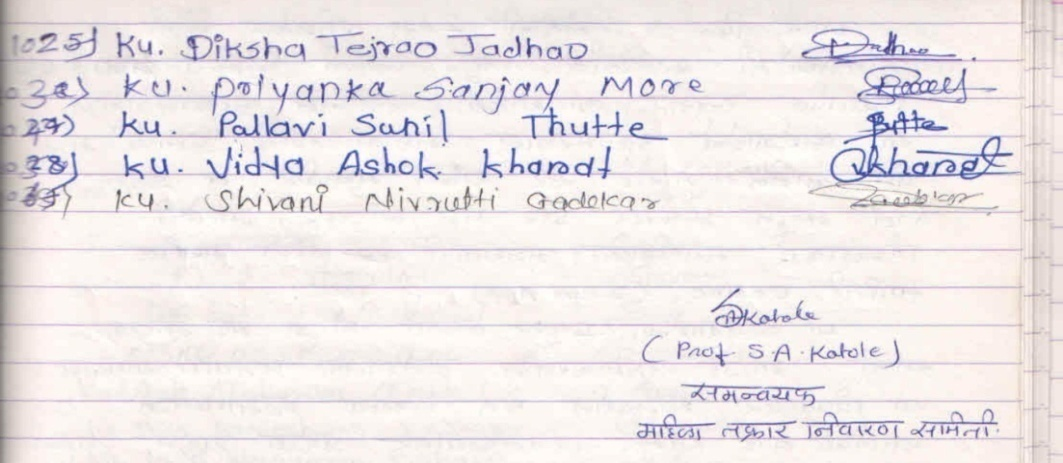 1025) Ku. Diksha Tejrao Jadhao
Ku. Priyanka Sanjay More
27) Ku. Pallavi Sunil Thutte
28) Ku. Vidya Ashok Kharat Kharat
Ku. Shivani Nivrutti Gadekar
SAKatole
(Prof. S.A. Katole)
समन्वयक
महिला तक्रार निवारण समिती.